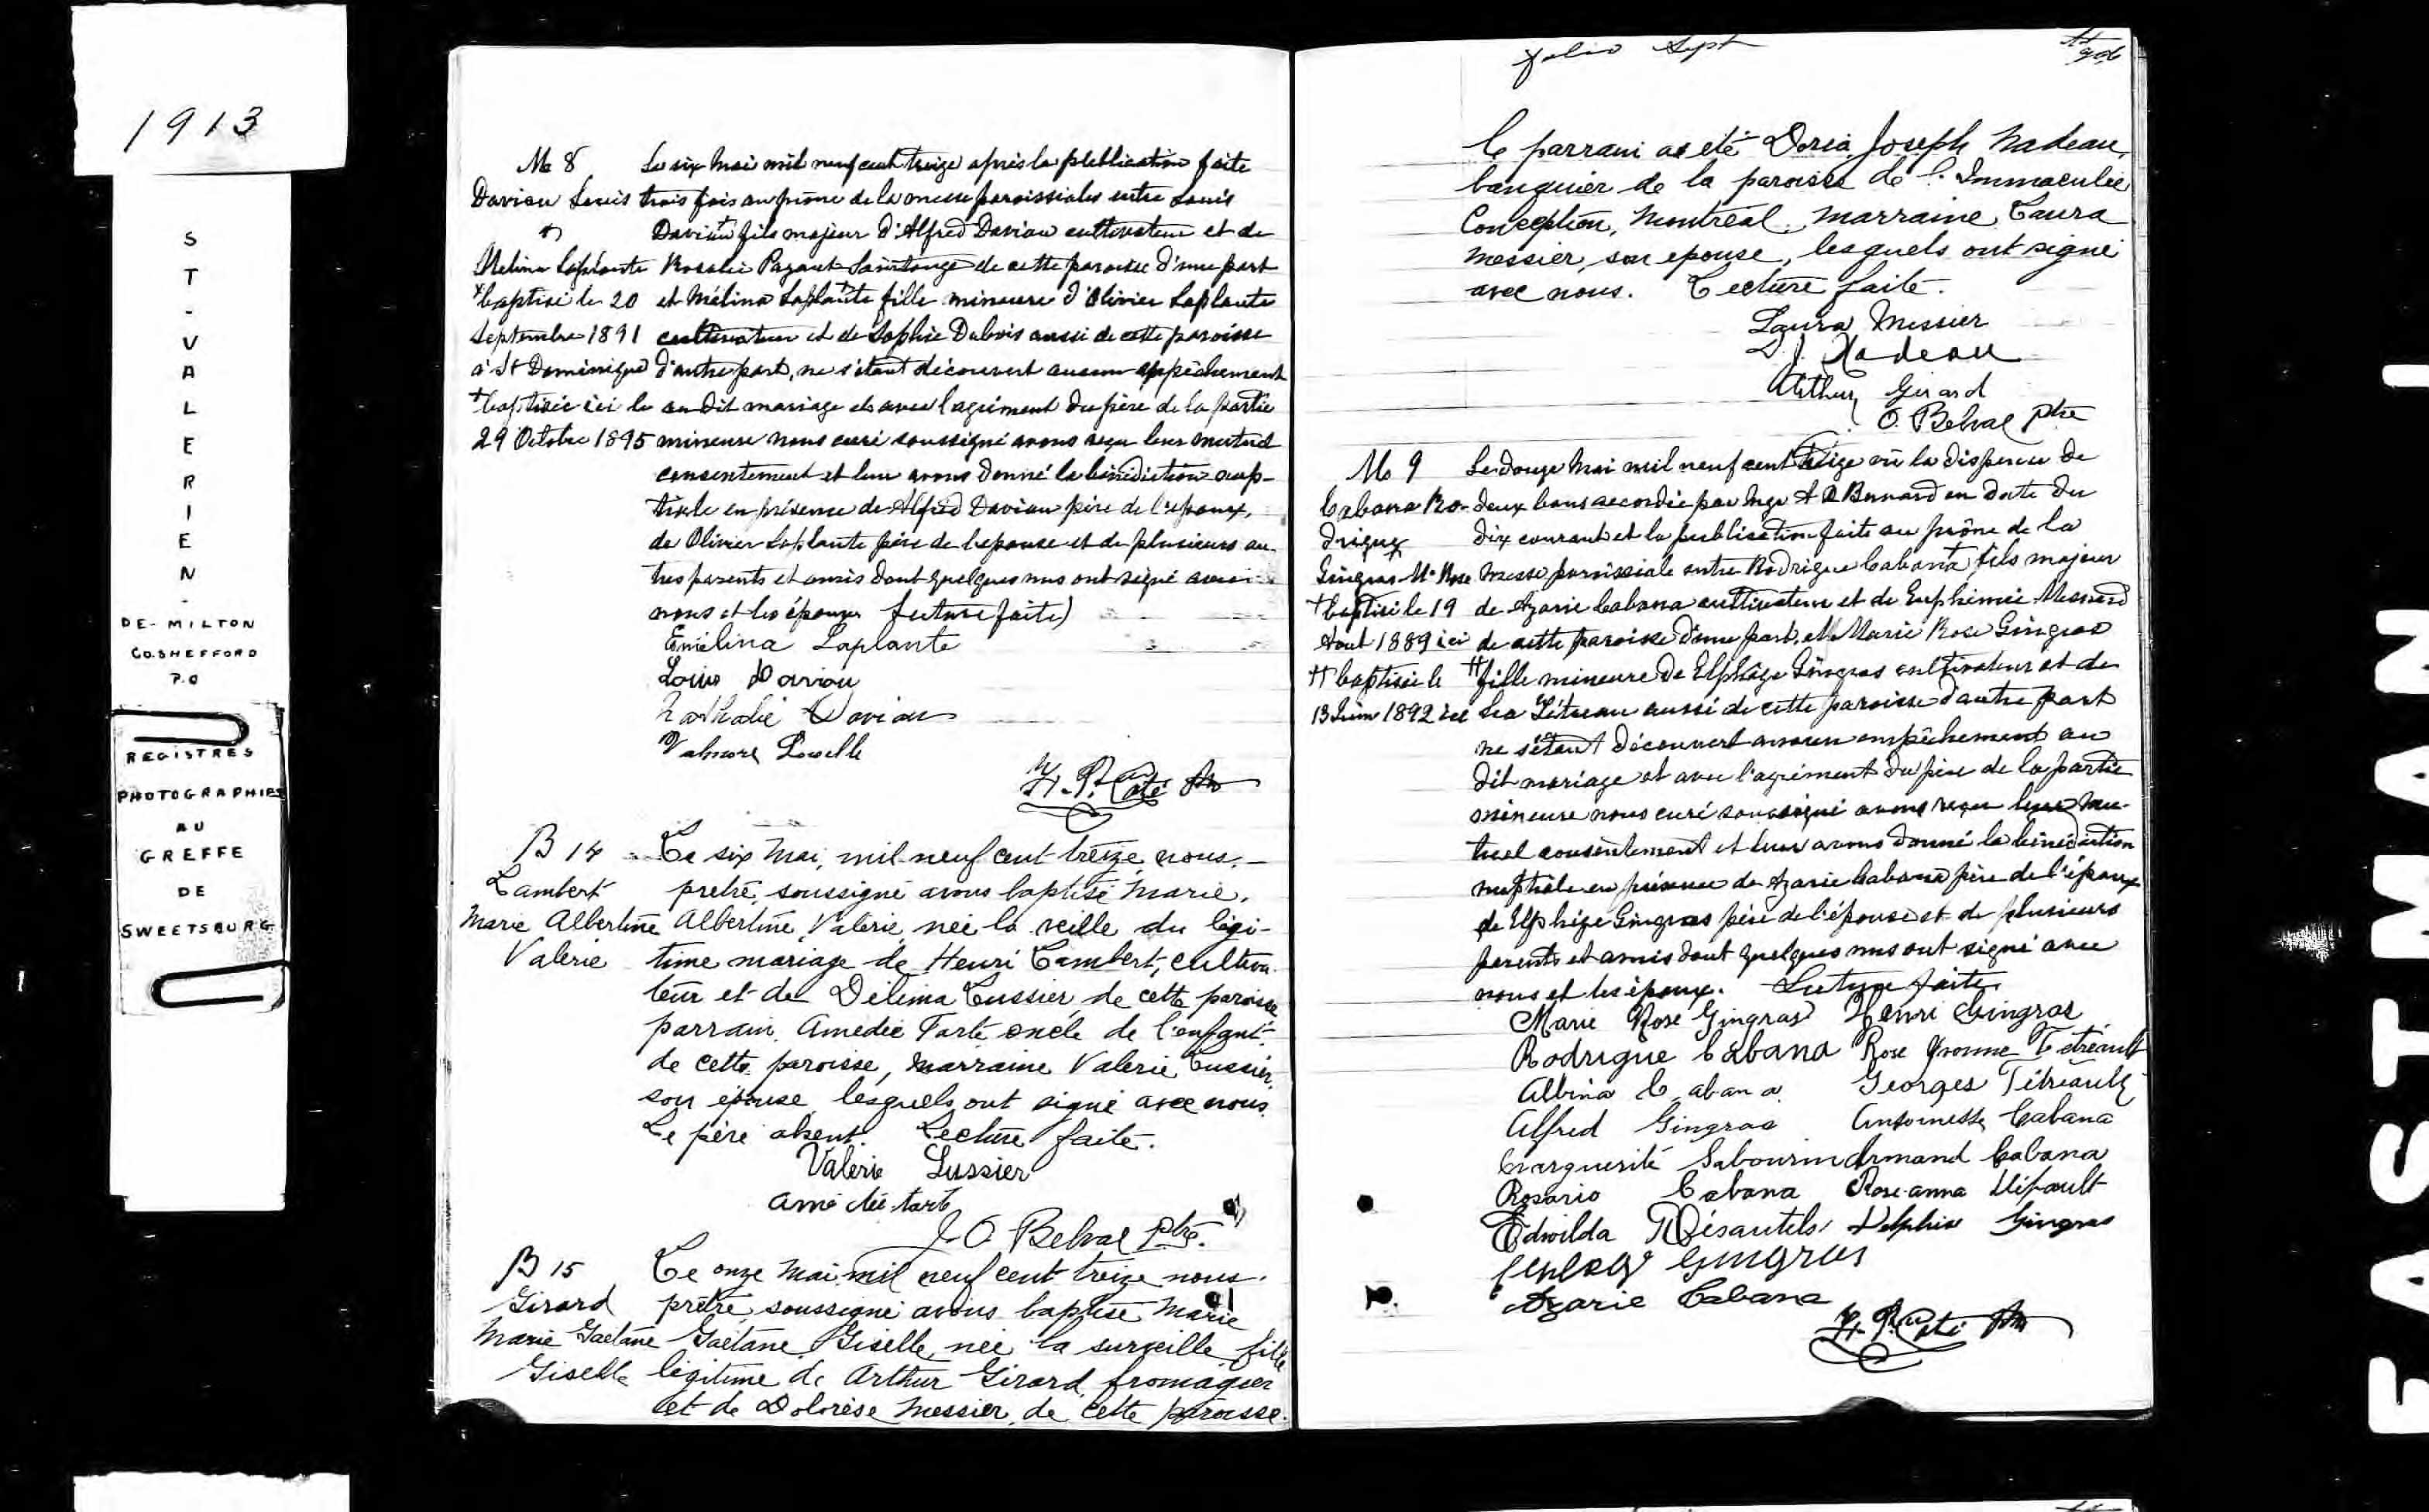 1913
ST-VALERIEN-
DE-MILTON
CO. SHEFFORD
P.Q
REGISTRES
PHOTOGRAPHIES
AU
GREFFE
DE
SWEETSBURG
M 8 Le six Mai mil neuf cent treize après la publication faite
Daviau Louis trois fois au prône de la messe paroissiales entre Louis
& Daviau + fils majeur d'Alfred Daviau cultivateur et de
Melina Laplante Rosalie Payant Saintonge de cette paroisse d'une part
+ baptisé le 20 et Mélina Laplante fille mineure d'Olivier Laplante
Septembre 1891 cultivateur et de Sophie Dubois aussi de cette paroisse
à St Dominique d'autre part, ne s'étant découvert aucun empêchement
+ baptisée ici le au dit mariage et avec l'agrément du père de la partie
29 Octobre 1895 mineure nous curé soussigné avons reçu leur mutuel
consentement et leur avons donné la bénédiction nup-
tiale en présence de Alfred Daviau père de l'époux,
de Olivier Laplante père de l'épouse et de plusieurs au-
tres parents et amis dont quelques uns ont signé avec
nous et les époux lecture faite)
Emélina Laplante
Louis Daviau
Nathalie Daviau
Valmore
H. P. Coté Ptre
B 14 Le six Mai, mil neuf cent treize, nous,
Lambert prêtre, soussigné avons baptisé Marie,
Marie Albertine Albertine, Valérie, née la veille du légi-
Valérie time mariage de Henri Lambert, cultiva-
teur et de Délima Lussier, de cette paroisse
parrain, Amédée Tarte oncle de l'enfant
de cette paroisse, marraine Valérie Lussier,
son épouse, lesquels ont signé avec nous.
Le père absent. Lecture faite.
Valérie Lussier
Amédée tarte
J. O. Belval Ptre.
B 15 Le onze Mai, mil neuf cent treize nous.
Girard prêtre, soussigné avons baptisé Marie
Marie Gaetane Gaétane, Giselle, née la surveille, fille
Giselle légitime de Arthur Girard, fromager
et de Dolorèse Messier, de cette paroisse.
folio Sept
le parrain a été Doria Joseph Nadeau,
banquier de la paroisse de l'Immaculée
Conception, Montréal, Marraine, Laura
Messier, son épouse, lesquels ont signé
avec nous. Lecture faite.
Laura Messier
D. J. Nadeau
Arthur Girard
O. Belval Ptre
M 9 Le douze Mai mil neuf cent treize vu la dispense de
Cabana Ro- deux bans accordée par Mgr A X Bernard en date du
drigue & dix courant et la publication faite au prône de la
Gingras M. Rose messe paroissiale entre Rodrigue Cabana + fils majeur
+ baptisé le 19 de Azarie Cabana cultivateur et de Euphémie Ménard
Aout 1889 ici de cette paroisse d'une part, et Marie Rose Gingras
++ baptisée le ++ fille mineure de Elphège Gingras cultivateur et de
13 Juin 1892 ici Léa Tétreau aussi de cette paroisse d'autre part
ne s'étant découvert aucun empêchement au
dit mariage et avec l'agrément du père de la partie
mineure nous curé soussigné avons reçu leur mu-
tuel consentement et leur avons donné la bénédiction
nuptiale en présence de Azarie Cabana père de l'époux
de Elphège Gingras père de l'épouse et de plusieurs
parents et amis dont quelques uns ont signé avec
nous et les époux. Lecture faite.
Marie Rose Gingras Henri Gingras
Rodrigue Cabana Rose Yvonne Tétreault
Albina Cabana Georges Tétreault
Alfred Gingras Antoinette Cabana
Marguerite Sabourin Armand Cabana
Rosario Cabana Rose-anna
Edwilda Désautels Delphis Gingras
Gingras
Azarie Cabana
H. P. Coté Ptre
EASTMAN